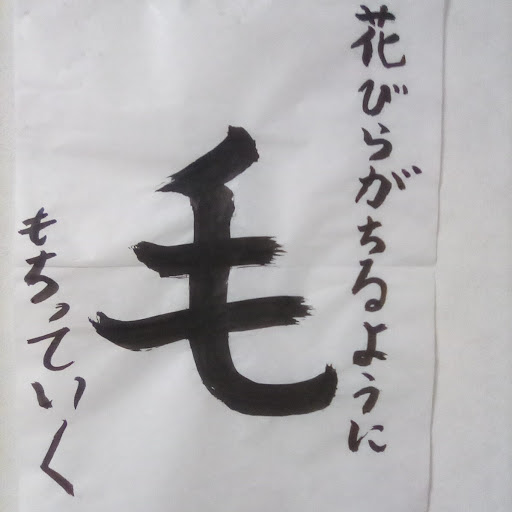 花びらがちるように
毛
もちっていく